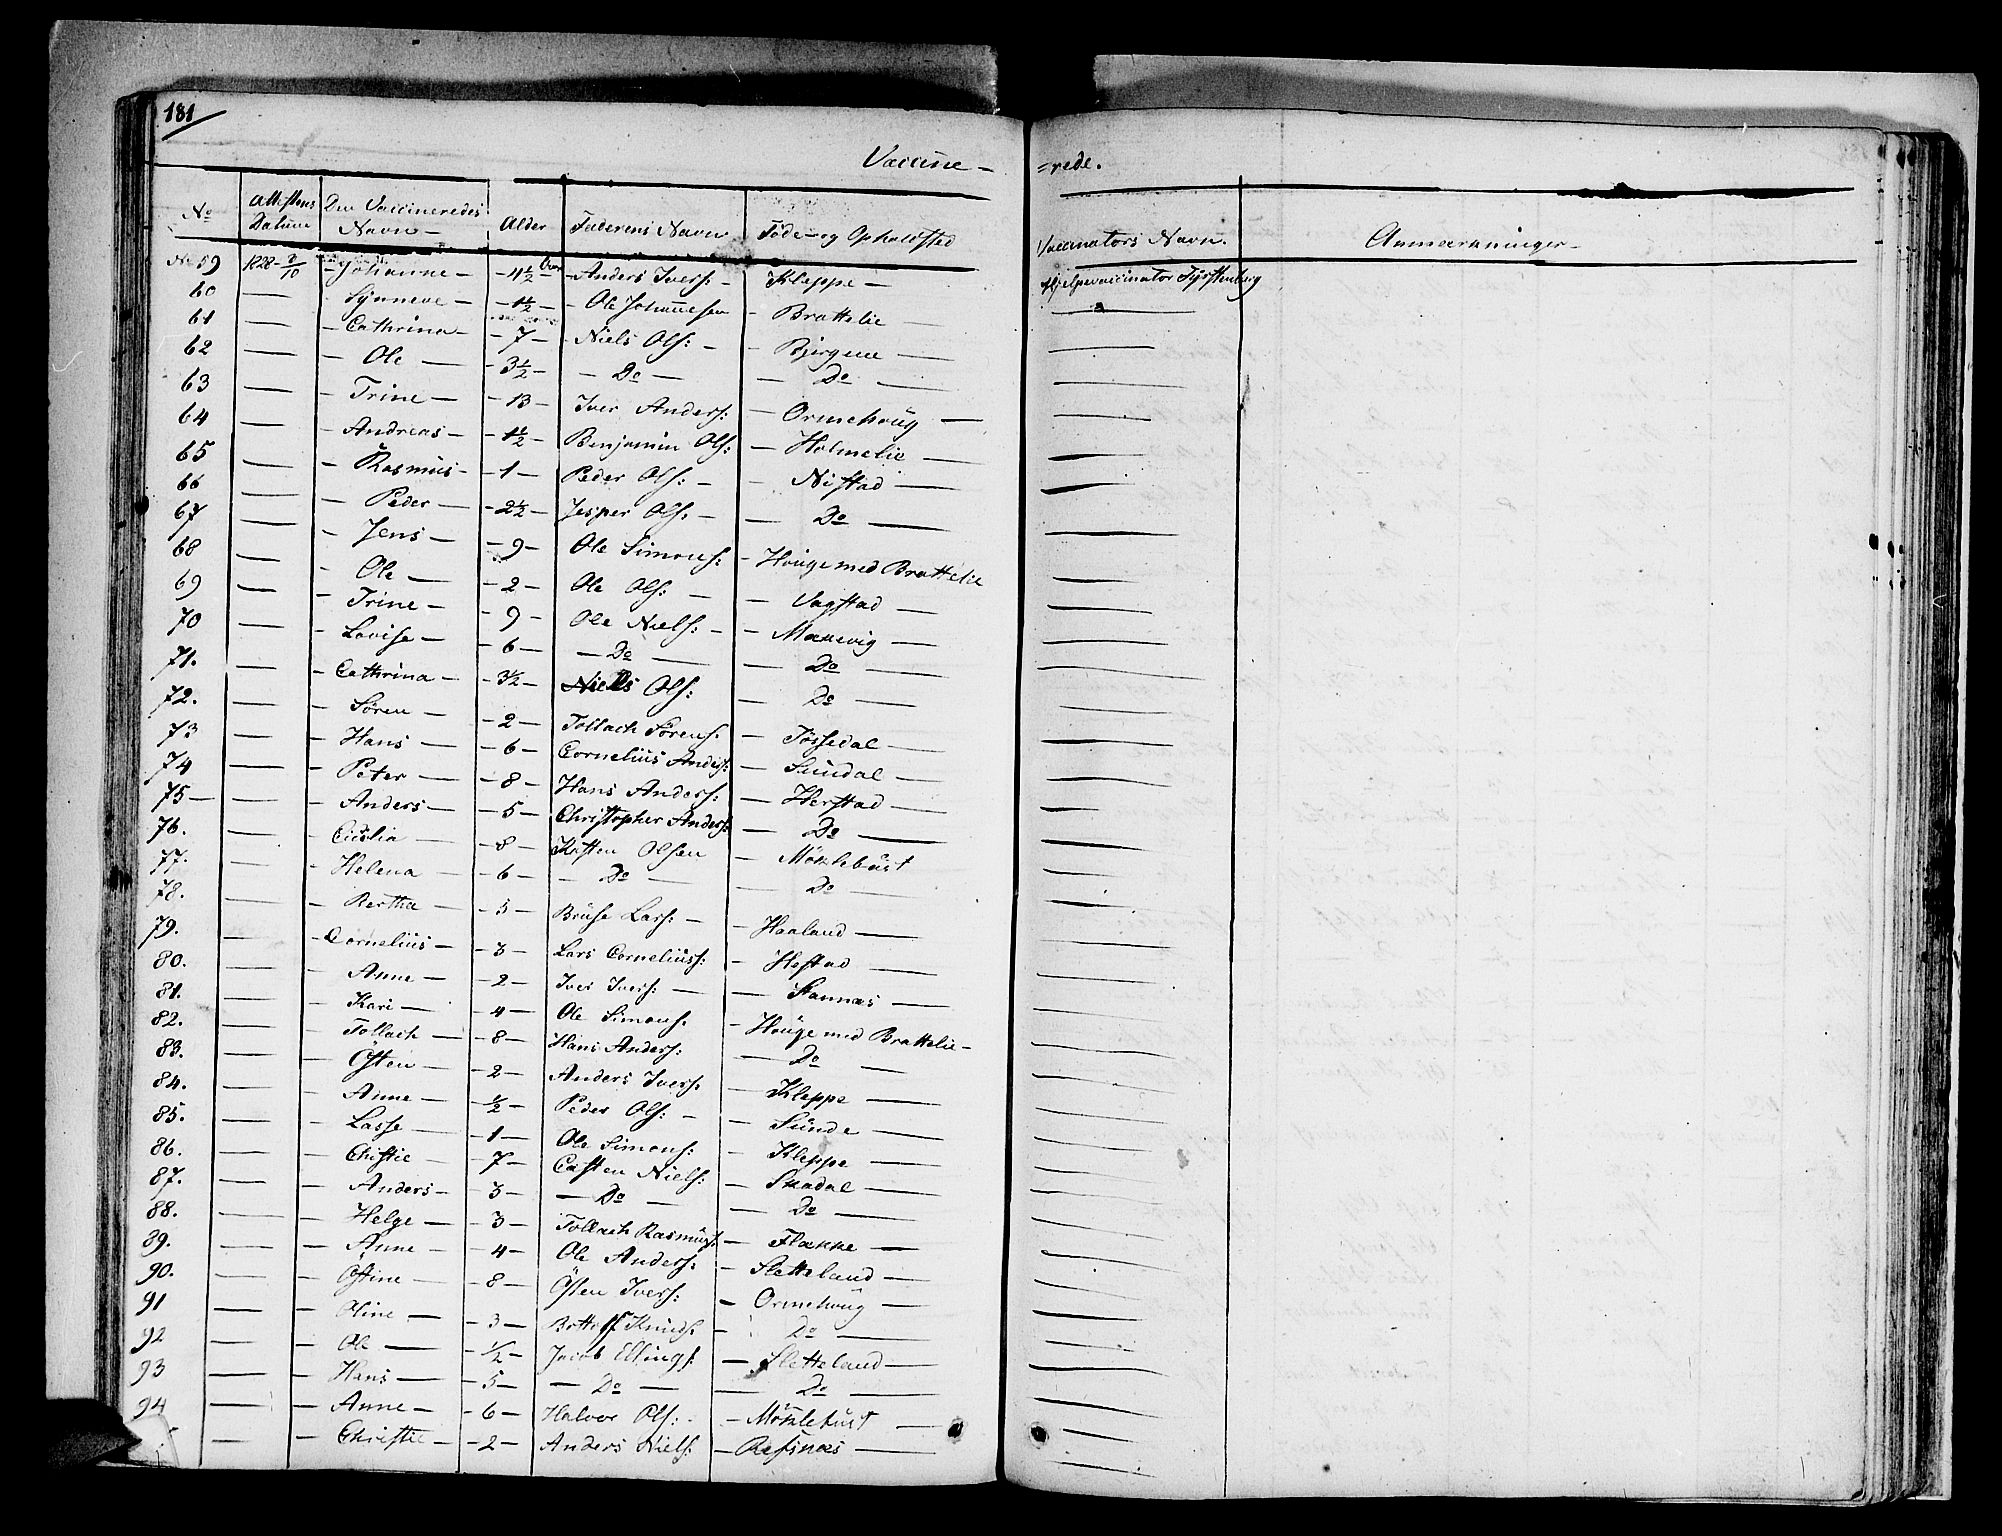 181
Vaccine- =rede.
No Attestens Datum Den Vaccineredes Navn Alder Faderens Navn Föde- og Opholdsted Vaccinators Navn. Anmærkninger
No 59 1828 8/10 - Johanne - 4 1/2 Aar - Anders Ivers: - Kleppe - Hjelpevaccinator
60 — - Synneve - 1 1/2 - Ole Johannesen - Brattelie —
61 — - Cathrina - 7 - Niels Ols: - Bjergene —
62 — - Ole - 3 1/2 - Do - Do —
63 — - Trine - 13 - Iver Anders: - Ormehoüg —
64 — - Andreas - 1 1/2 - Benjamin Ols: - Holmelie —
65 — - Rasmüs - 1 - Peder Ols: - Nistad —
66 — - Peder - 2 1/2 - Jesper Ols: - Do —
67 — - Jens - 9 - Ole Simons: - Houge med Brattelie
68 — - Ole - 2 - Ole Ols: - Vagstad —
69 — - Trine - 9 - Ole Niels: - Marevig —
70 — - Lovise - 6 - Do - Do —
71. — - Cathrina - 3 1/2 - Niels Ols: - Do —
72. — - Sören - 2 - Tollach Sörens: - Tössedal —
73 — - Hans - 6 - Cornelius Anders: - Sündal —
74 — - Peter - 8 - Hans Anders: - Herstad —
75 — - Anders - 5 - Christopher Anders: - Do —
76. — Cicilia - 8 - Kasten Olsen - Möklebüst
77. — - Helena - 6 - Do - Do —
78. — - Bertha - 5 - Brüse Lars: - Haaland —
79. — - Cornelius - 3 - Lars Corneliüss: - Hestad —
80. — - Anne - 2 - Iver Ivers: - Stannæs —
81. — - Kari - 4 - Ole Simons: - Houge med Brattelie -
82. — - Tollach - 8 - Hans Anders: - Do —
83. — - Östen - 2 - Anders Ivers: - Kleppe —
84. — - Anne - 1/2 - Peder Ols: - Sünde —
85. — - Lasse - 1 - Ole Simons: - Kleppe —
86. — - Christie - 7 - Casten Niels: - Skadal —
87. — - Anders - 3 - Do - Do —
88. — - Helge - 3 - Tollach Rasmüs: - Flække —
89. — - Anne - 4 - Ole Anders: - Sletteland —
90. — - Östine - 8 - Östen Ivers: - Ormehoüg —
91 — - Oline - 3 - Botolf Knüds: - Do —
92 — - Ole - 1/2 - Jacob Ellings: - Sletteland —
93 — - Hans - 5 - Do - Do —
94 — - Anne - 6 - Halvor Ols: - Möklebüst —
— - Christie - 2 - Anders Niels: - Refsnæs —